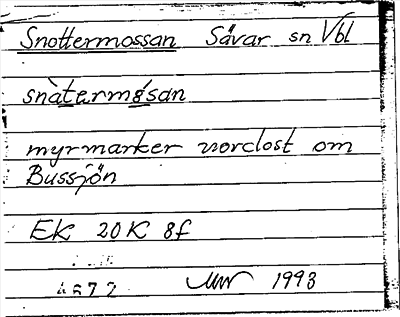 Snottermossan Sävar sn Vbl
snàtermósan
myrmarker nordost om
Bussjön
Ek 20K 8f
1993